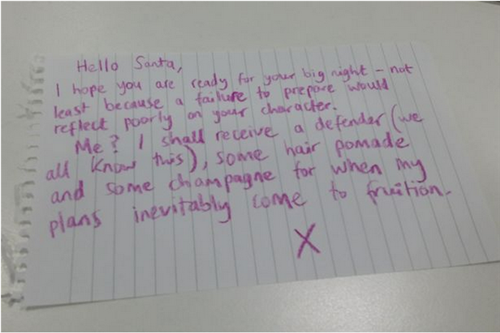 Hello Santa,
I hope you are ready for your big night - not
least because a failure to prepare would
reflect poorly on your character.
Me? I shall receive a defender (we
all know this), some hair pomade
and some champagne for when my
plans inevitably come to fruition.
X